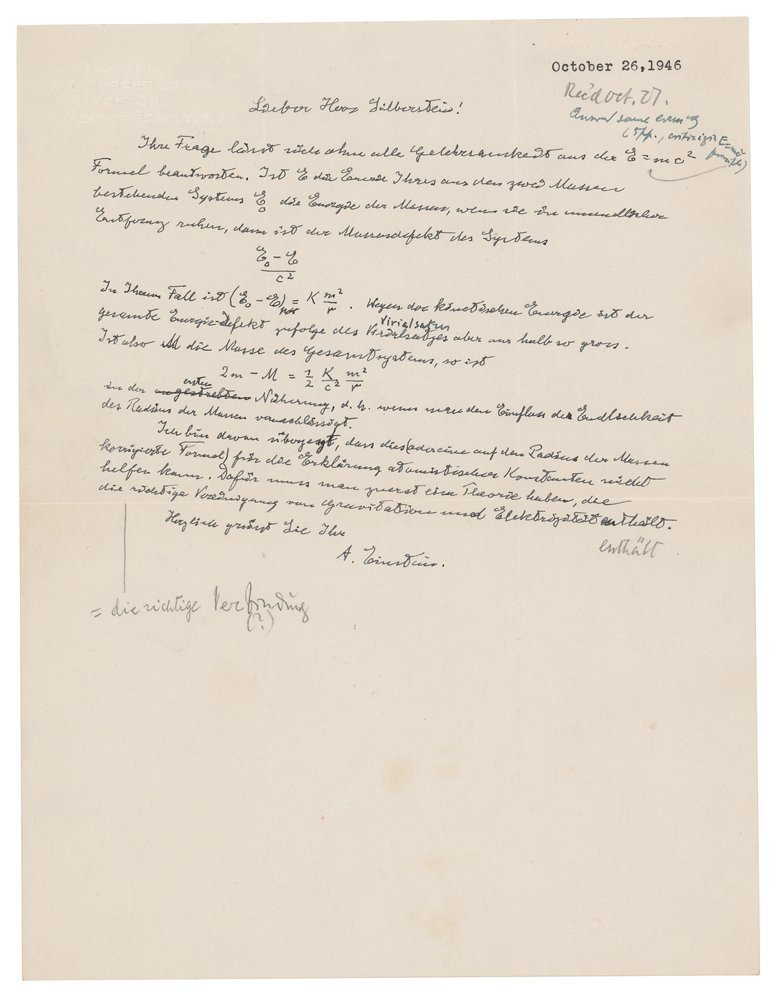 October 26,1946
Rec'd Oct. 27.
Lieber Herr Silberstein!
Ihre Frage lässt sich ohne alle Gelehrsamkeit aus der E = mc²
Formel beantworten. Ist E die Energie Ihres aus den zwei Massen
bestehenden Systems E₀ die Energie der Massen, wenn sie in unendlicher
Entfernung ruhen, dann ist der Massendefekt des Systems
(E₀ - E) / c²
In Ihrem Fall ist (E₀ - E) = K m²/r . Wegen der kinetischen Energie ist der
gesamte Energiedefekt zufolge des Virialsatzes aber nur halb so gross.
Virialsatzes
Ist also M die Masse des Gesamtsystems, so ist
2m - M = 1/2 K/c² m²/r
in der ersten Näherung, d. h. wenn man den Einfluss der Endlichkeit
des Radius der Massen vernachlässigt.
Ich bin davon überzeugt, dass dies (oder eine auf den Radius der Massen
korrigierte Formel) für die Erklärung atomistischer Konstanten nicht
helfen kann. Dafür muss man zuerst eine Theorie haben, die
die richtige Vereinigung von Gravitation und Elektrizität enthält.
enthält
Herzlich grüsst Sie Ihr
A. Einstein.
= die richtige Verbindung
(?)